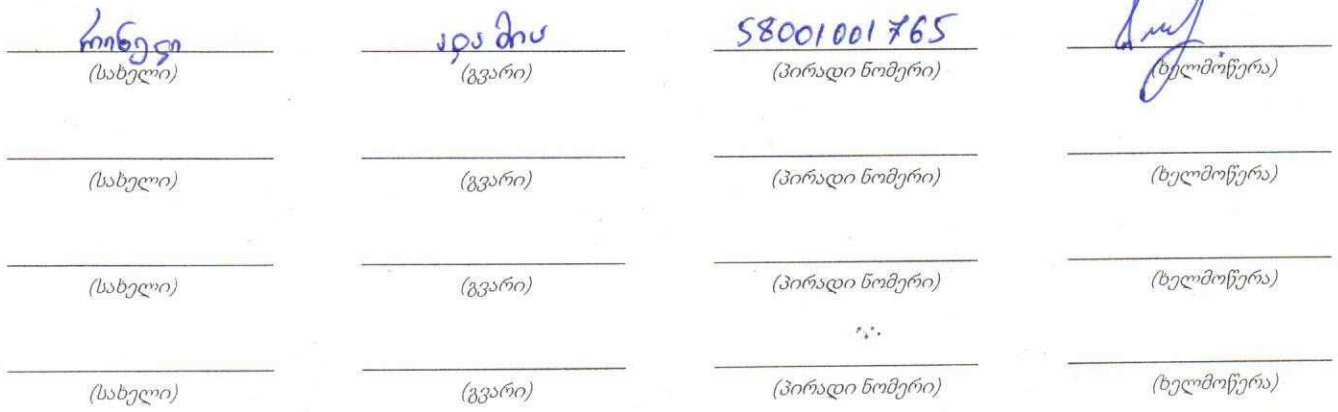 რინელი ადამია 58001001765
(სახელი) (გვარი) (პირადი ნომერი) (ხელმოწერა)
(სახელი) (გვარი) (პირადი ნომერი) (ხელმოწერა)
(სახელი) (გვარი) (პირადი ნომერი) (ხელმოწერა)
(სახელი) (გვარი) (პირადი ნომერი) (ხელმოწერა)